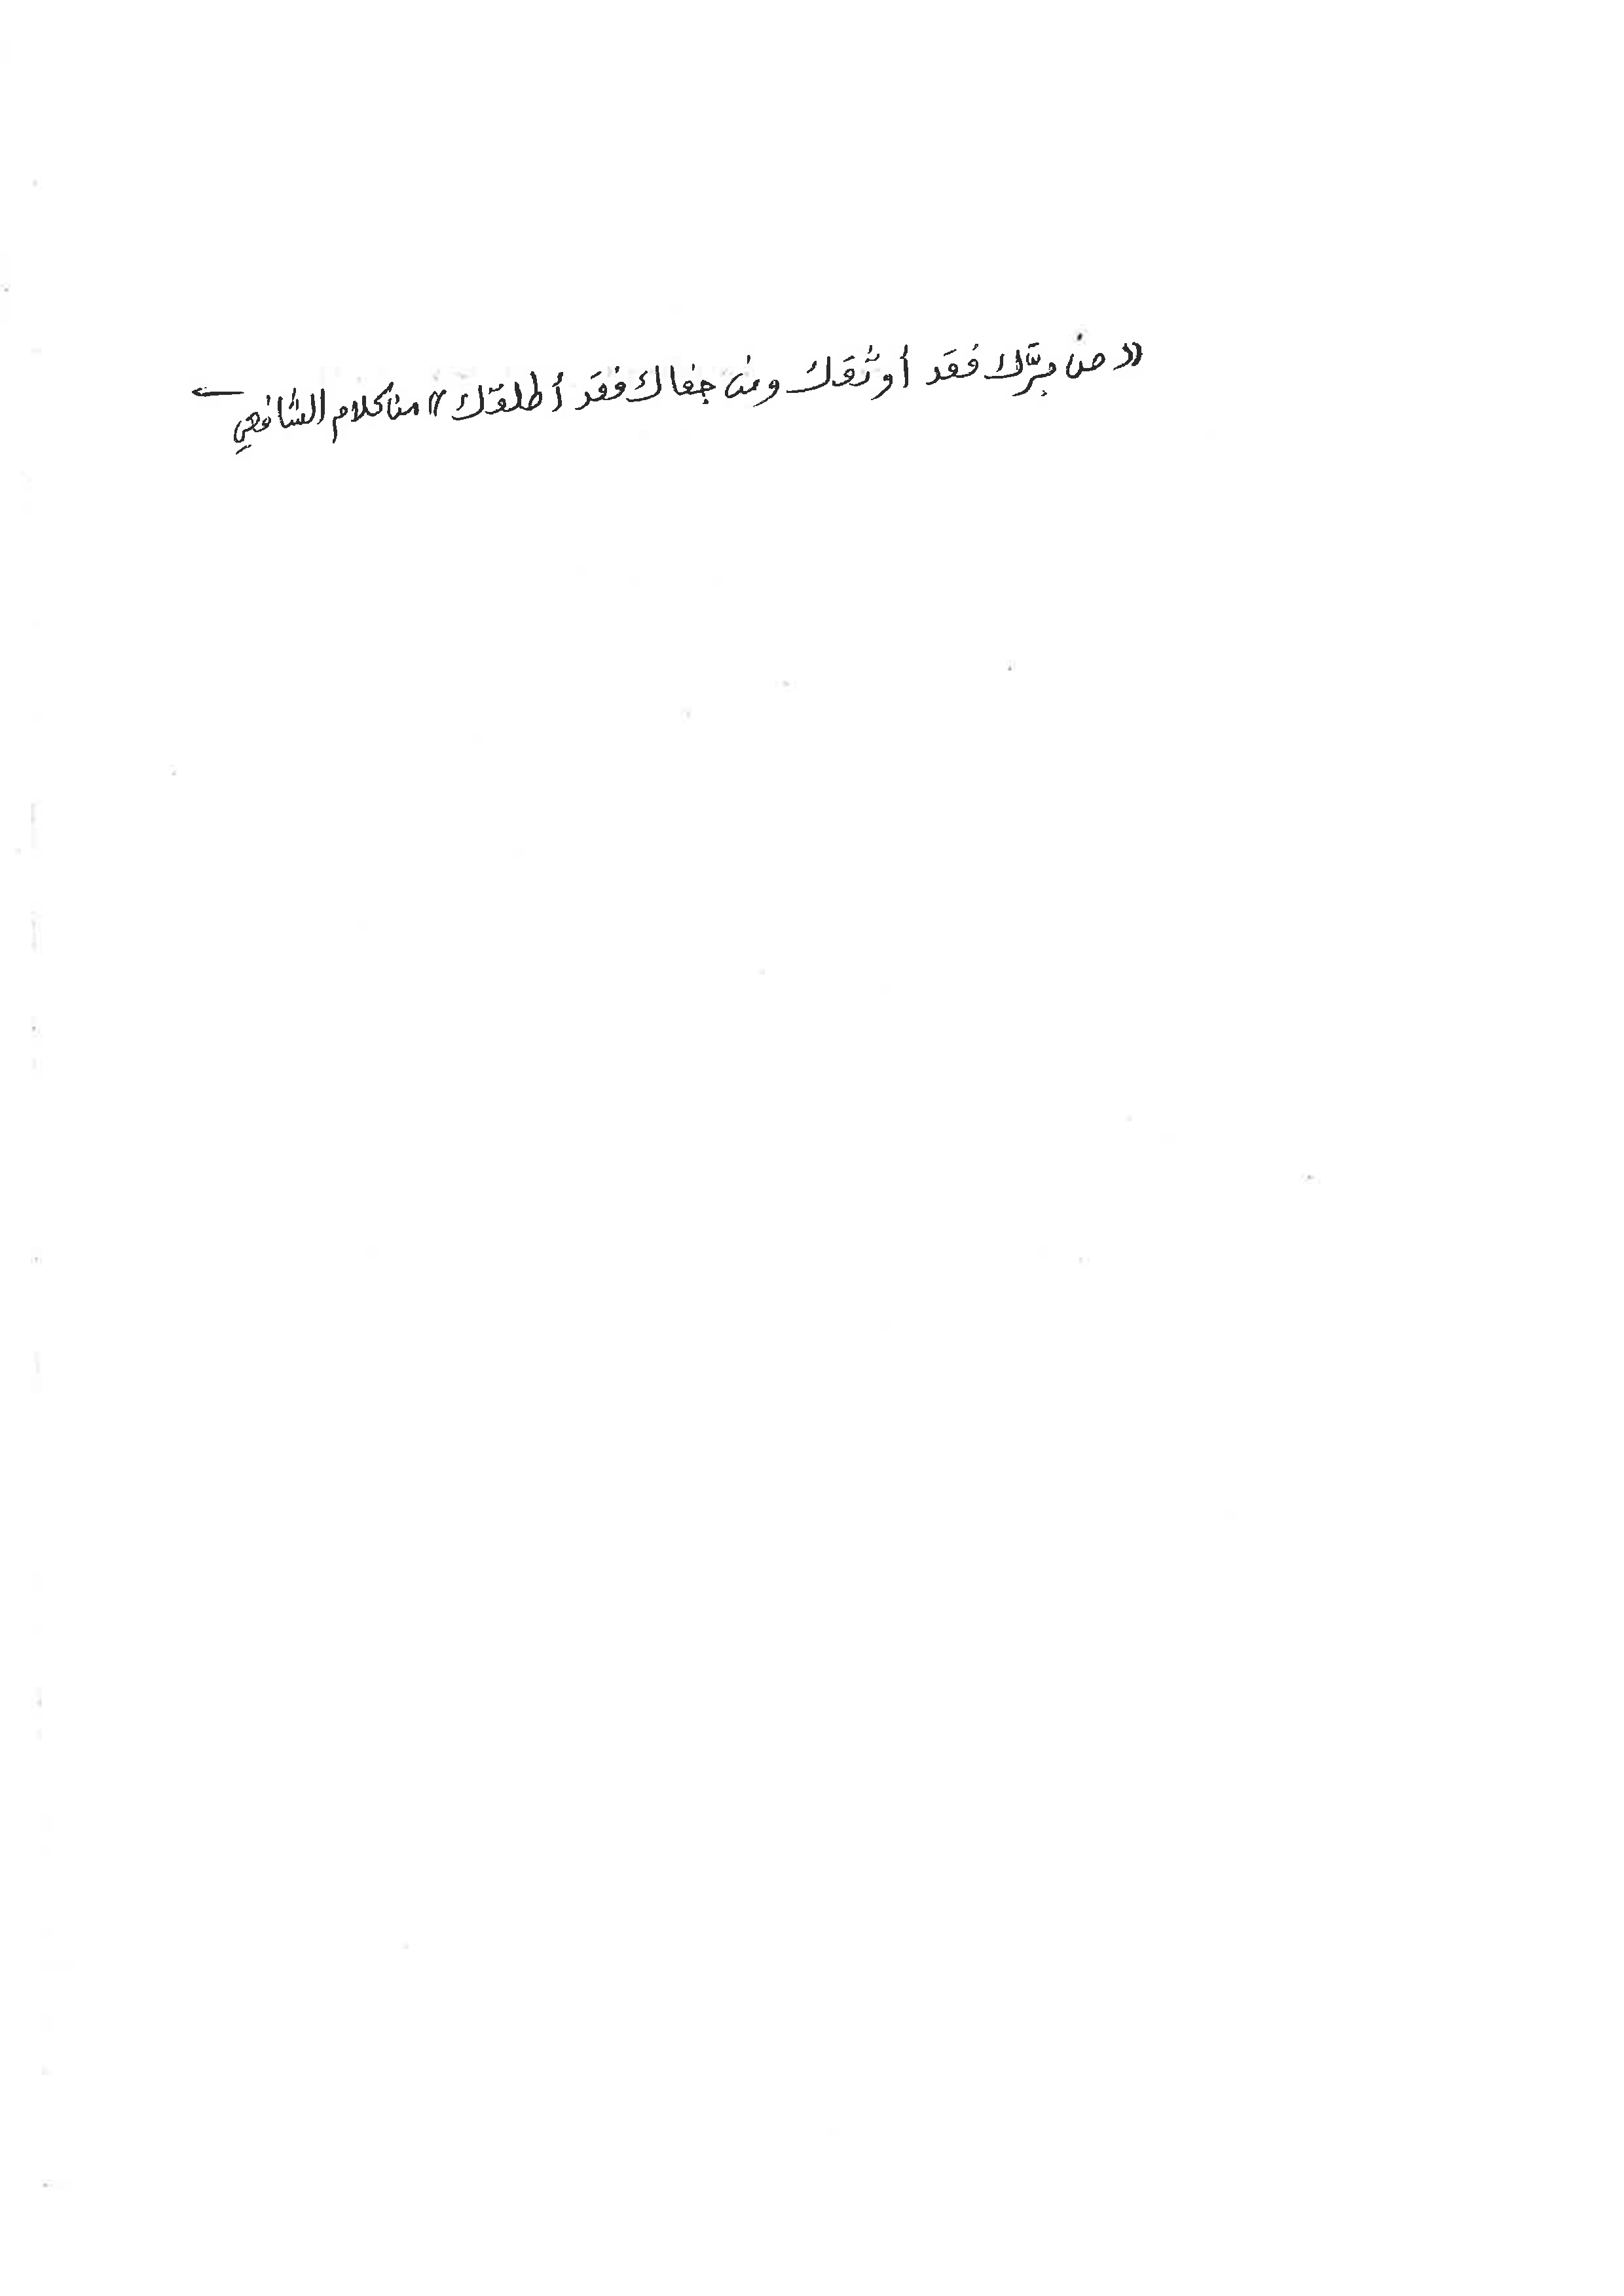 «من برَّك فقد أوثقك ومن جفاك فقد أطلقك» من كلام الشافعي ←